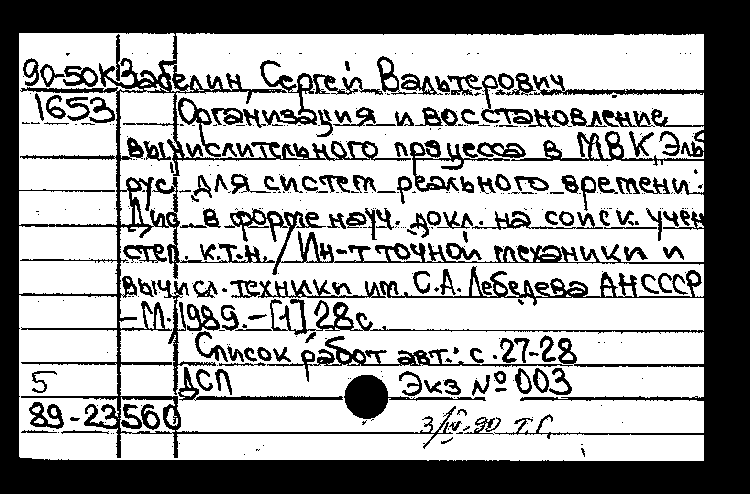 90-50К Забелин, Сергей Вальтерович
1653 Организация и восстановление
вычислительного процесса в МВК "Эль
рус" для систем реального времени:
Дис. в форме науч. докл. на соиск. учен
степ. к.т.н. / Ин-т точной механики и
вычисл. техники им. С.А. Лебедева АНСССР
-М. 1989. -[1] 28 с.
Список работ авт.: с. 27-28
5 ДСП Экз № 003
89-23560
3/IV-90 Т.Г.